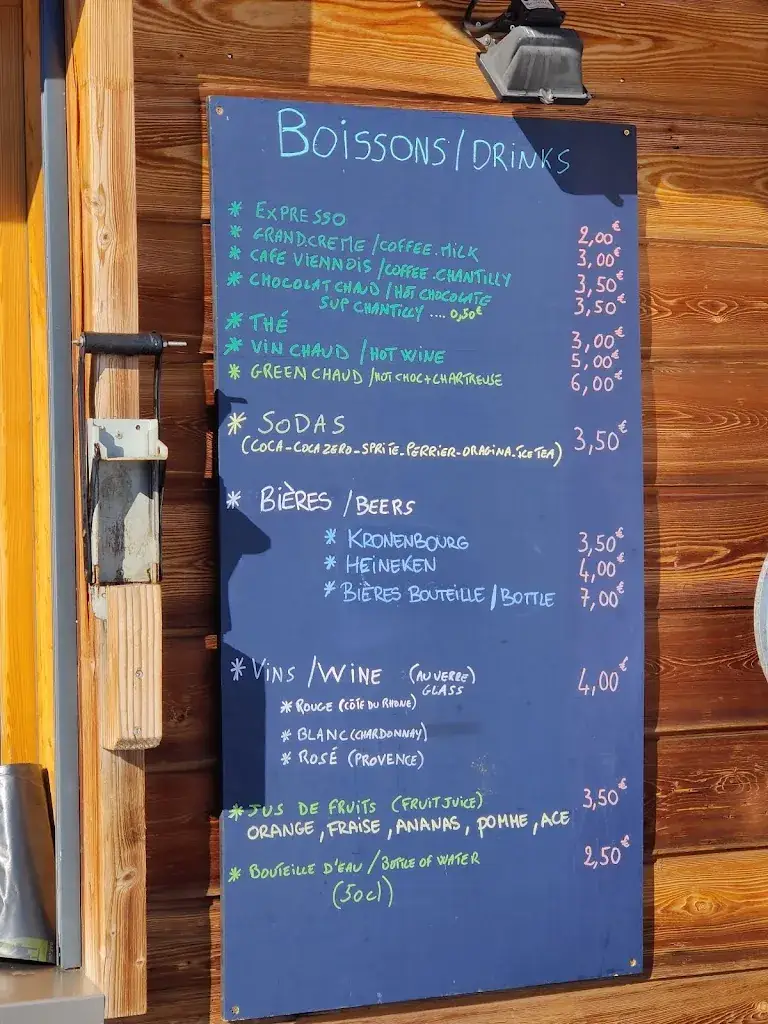 BOISSONS/DRINKS
* EXPRESSO 2,00€
* GRAND CREME/COFFEE.MILK 3,00€
* CAFE VIENNOIS/COFFEE.CHANTILLY 3,50€
* CHOCOLAT CHAUD/HOT CHOCOLATE 3,50€
SUP CHANTILLY .... 0,50€
* THÉ 3,00€
* VIN CHAUD/HOT WINE 5,00€
* GREEN CHAUD/HOT CHOC+CHARTREUSE 6,00€
* SODAS 3,50€
(COCA-COCA ZERO-SPRITE-PERRIER-ORAGINA.ICE TEA)
* BIÈRES/BEERS
* KRONENBOURG 3,50€
* HEINEKEN 4,00€
* BIÈRES BOUTEILLE/BOTTLE 7,00€
* VINS/WINE (AU VERRE) 4,00€
GLASS
* ROUGE (CÔTE DU RHONE)
* BLANC (CHARDONNAY)
* ROSÉ (PROVENCE)
* JUS DE FRUITS (FRUIT JUICE) 3,50€
ORANGE, FRAISE, ANANAS, POMME, ACE
* BOUTEILLE D'EAU/BOTTLE OF WATER 2,50€
(50cl)